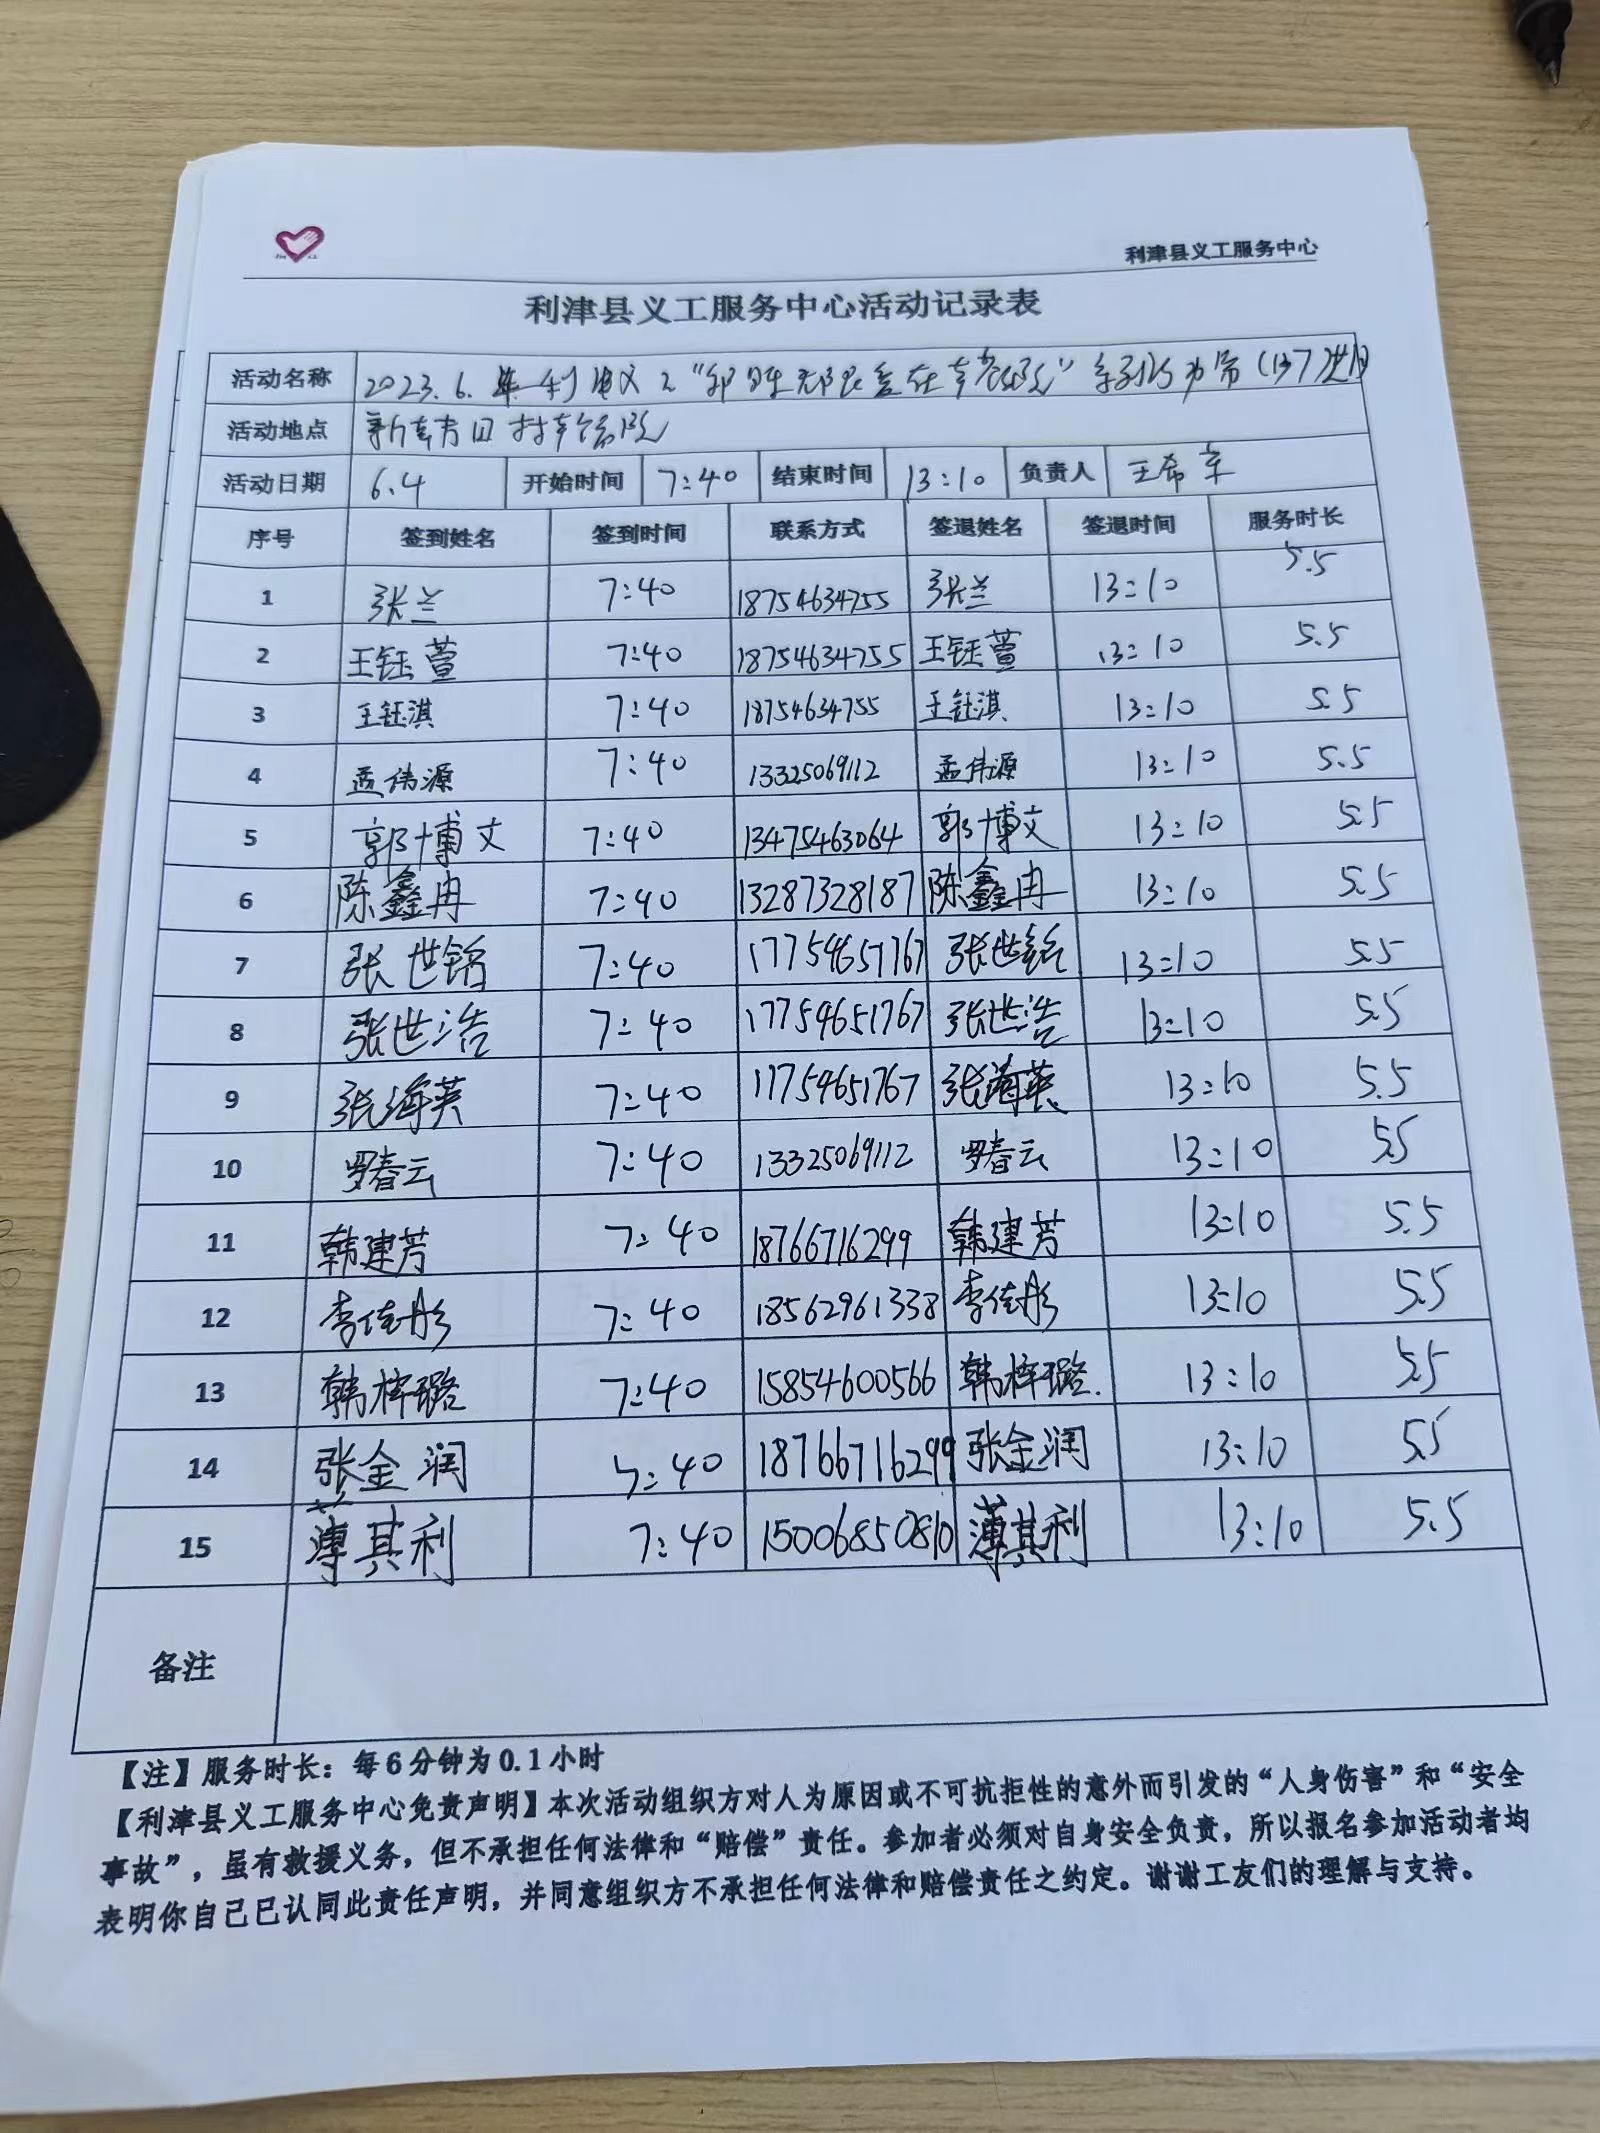 利津县义工服务中心
利津县义工服务中心活动记录表
活动名称 2023.6.
活动地点
活动日期 6.4 开始时间 7:40 结束时间 13:10 负责人 王希
序号 签到姓名 签到时间 联系方式 签退姓名 签退时间 服务时长
1 张兰 7:40 18754634755 张兰 13:10 5.5
2 王钰萱 7:40 18754634755 王钰萱 13:10 5.5
3 王钰淇 7:40 18754634755 王钰淇 13:10 5.5
4 孟伟源 7:40 13325069112 孟伟源 13:10 5.5
5 郭博文 7:40 13475463064 郭博文 13:10 5.5
6 陈鑫冉 7:40 13287328187 陈鑫冉 13:10 5.5
7 张世铭 7:40 17754651767 张世铭 13:10 5.5
8 张世浩 7:40 17754651767 张世浩 13:10 5.5
9 张海英 7:40 17754651767 张海英 13:10 5.5
10 罗春云 7:40 13325069112 罗春云 13:10 5.5
11 韩建芳 7:40 18766716299 韩建芳 13:10 5.5
12 李佳彤 7:40 18562961338 李佳彤 13:10 5.5
13 韩梓璐 7:40 15854600566 韩梓璐. 13:10 5.5
14 张金润 7:40 18766716299 张金润 13:10 5.5
15 薄其利 7:40 15006850810 薄其利 13:10 5.5
备注
【注】服务时长：每6分钟为0.1小时
【利津县义工服务中心免责声明】本次活动组织方对人为原因或不可抗拒性的意外而引发的“人身伤害”和“安全
事故”，虽有救援义务，但不承担任何法律和“赔偿”责任。参加者必须对自身安全负责，所以报名参加活动者均
表明你自己已认同此责任声明，并同意组织方不承担任何法律和赔偿责任之约定。谢谢工友们的理解与支持。